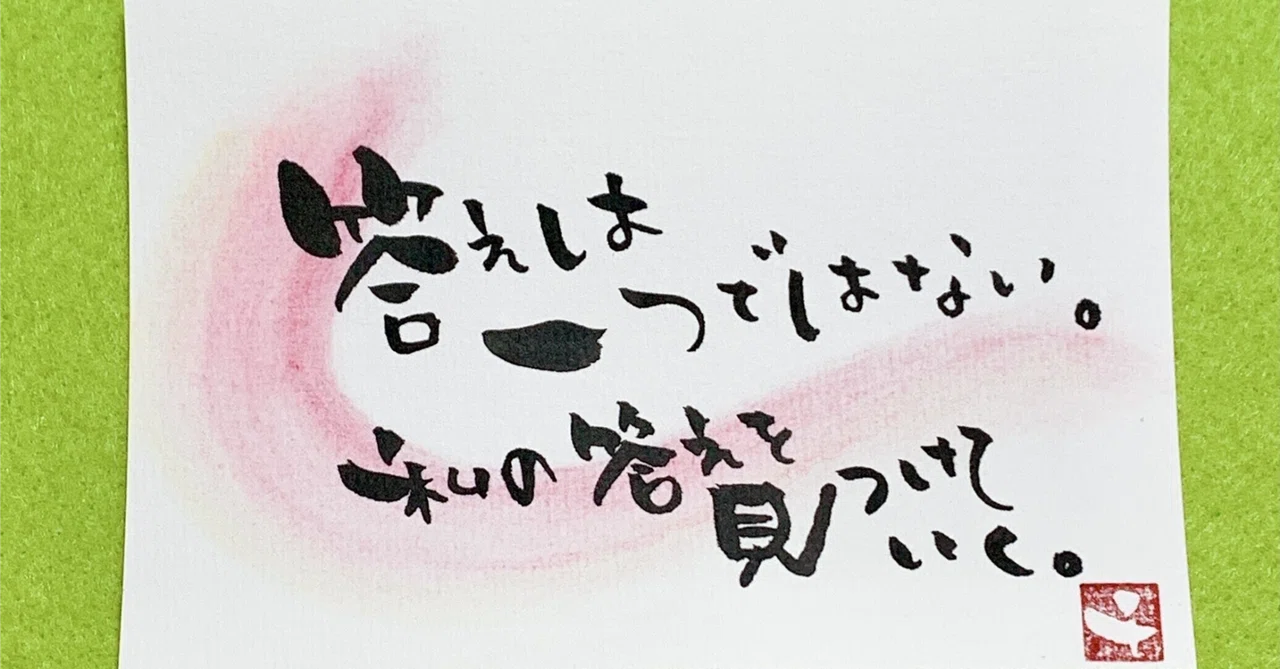 答えは
一つではない。
私の答えを
見つけて
いく。